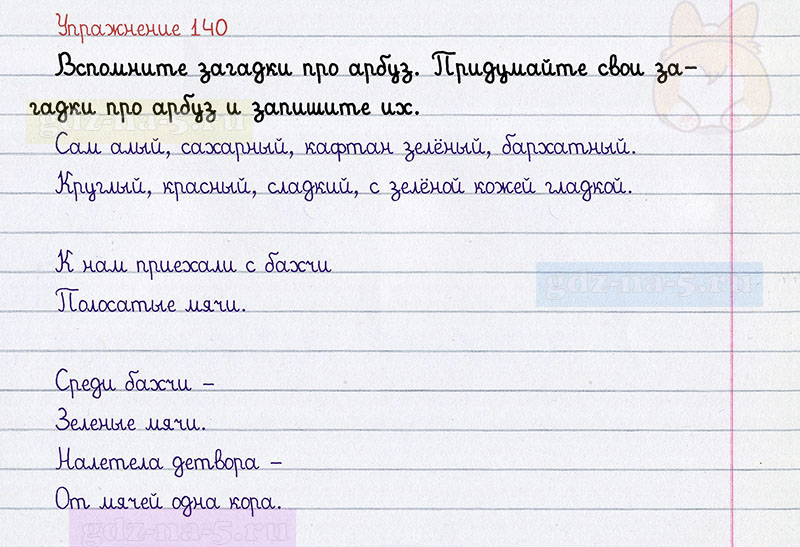 Упражнение 140
Вспомните загадки про арбуз. Придумайте свои за-
гадки про арбуз и запишите их.
gdz-na-5.ru
Сам алый, сахарный, кафтан зелёный, бархатный.
Круглый, красный, сладкий, с зелёной кожей гладкой.
К нам приехали с бахчи
gdz-na-5.ru
Полосатые мячи.
Среди бахчи –
Зеленые мячи.
Налетела детвора –
От мячей одна кора.
gdz-na-5.ru